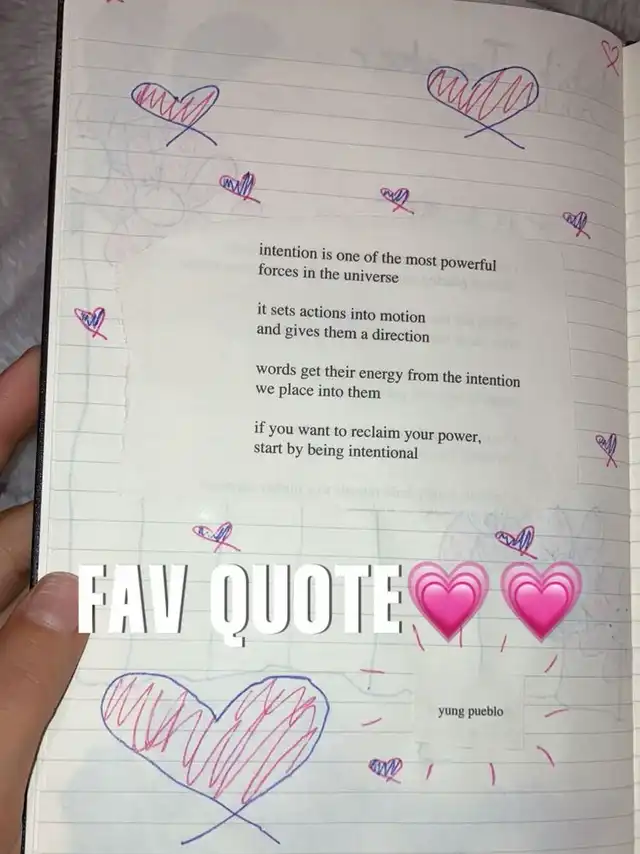 intention is one of the most powerful
forces in the universe
it sets actions into motion
and gives them a direction
words get their energy from the intention
we place into them
if you want to reclaim your power,
start by being intentional
FAV QUOTE💗💗
yung pueblo